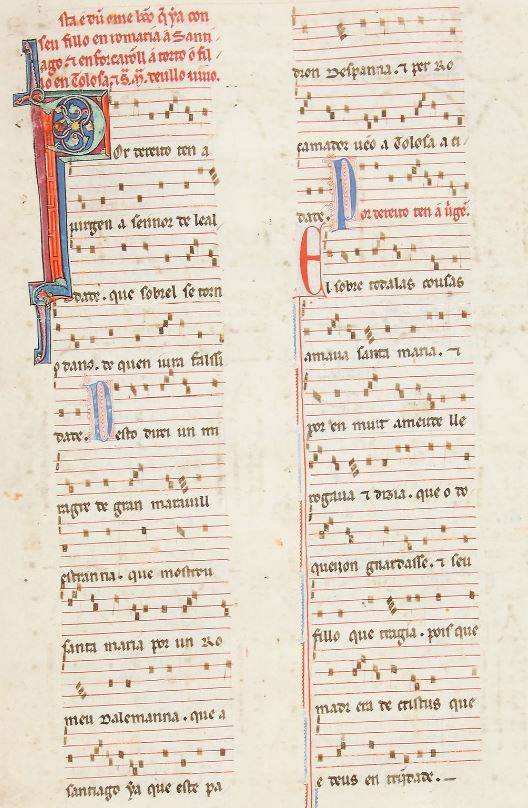 sta e dũ ome bõo q̃ ya con
seu fillo en romaria a Santi
ago ⁊ enforcarõll a torto o fil
lo en Tolosa. ⁊ S. M. deullo uiuo.
Por dereito ten a
uirgen a sennor de leal
dade. que sobrel se torn
o dano. de quen iura falssi
dade. Desto direi un mi
ragre de gran marauill
estranna. que mostrou
santa maria por un Ro
meu Dalemanna. que a
santiago ya que este pa
dron Despanna. ⁊ per Ro
camador uẽo a Tolosa a ci
dade. Por dereito ten a uirgẽ.
El sobre todalas cousas
amaua santa maria. ⁊
por en muit ameude lle
rogaua ⁊ dizia. que o do
queijon guardasse. ⁊ seu
fillo que tragia. pois que
madr era de cristus que
e deus en trijdade.